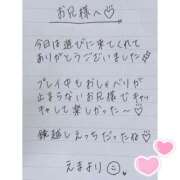 お兄様へ♡
今日は遊びに来てくれて
ありがとうございました
プレイ中もおしゃべりが
止まらないお兄様でキャッ
キャして楽しかった〜♡
鏡越しえっちだったね
えまより